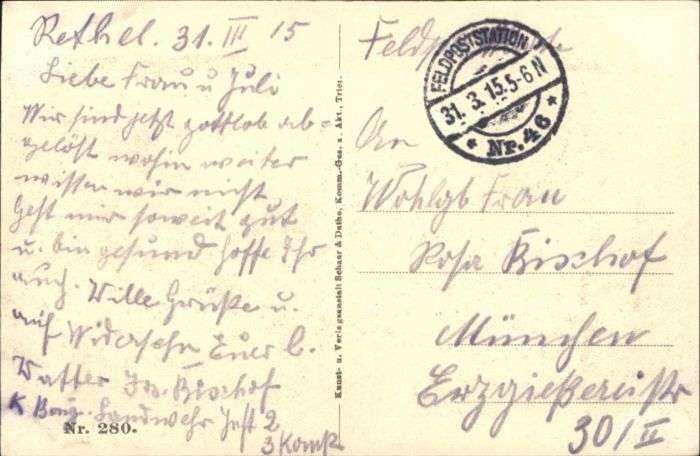 Rethel. 31. III 15
Liebe Frau u Juli
Wir sind jetzt gottlob ab=
gelöst wohin weiter
wissen wir nicht
Geht mir soweit gut
u. bin gesund hoffe Ihr
auch. Ville Grüße u.
auf Widersehn Euer l.
Vatter Bischof
K Bay. Landwehr 2
3 Komp
Nr. 280.
Kunst- u. Verlagsanstalt Schaar & Dathe, Komm.-Ges. a. Akt., Trier.
FELDPOSTSTATION
31. 3. 15. 5-6 N
* Nr. 46 *
An
Wohlgb Frau
Rosa Bischof
München
Erzgießereistr
30/II